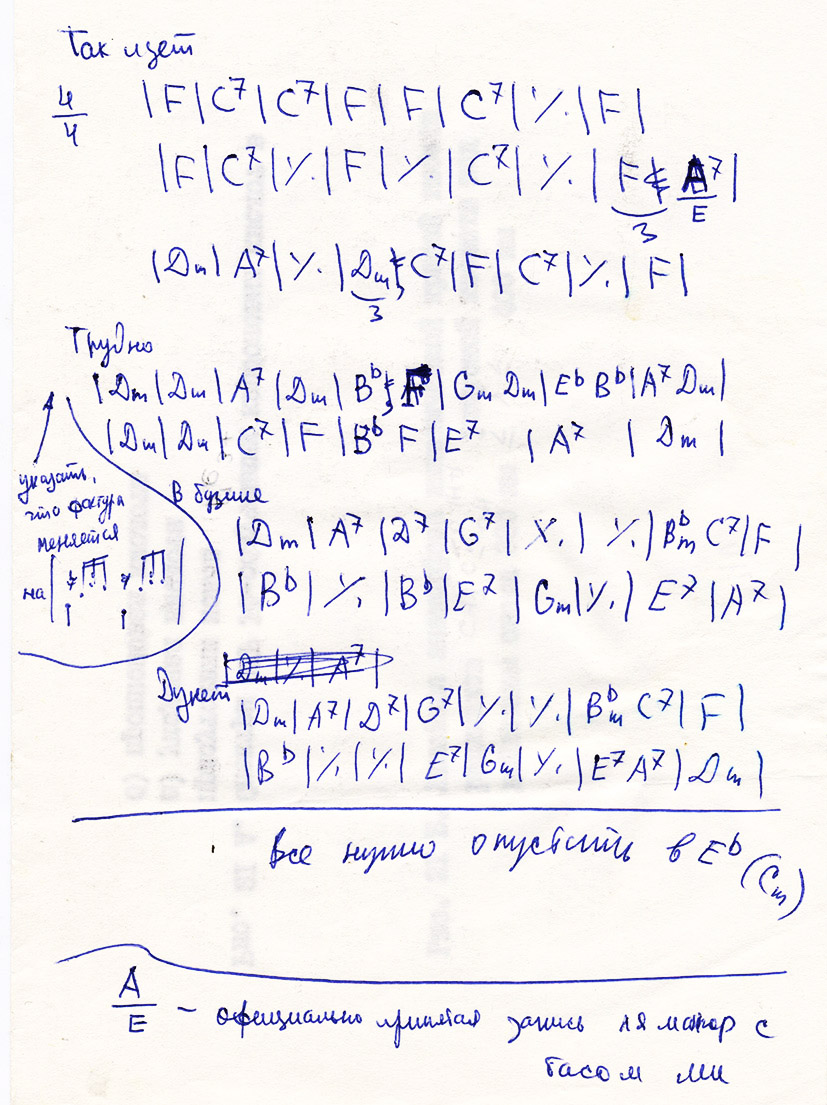 Так идет
4/4 | F | C7 | C7 | F | F | C7 | ٪ | F |
| F | C7 | ٪ | F | ٪ | C7 | ٪ | F A7/E |
3
| Dm | A7 | ٪ | Dm C7 | F | C7 | ٪ | F |
3
Трудно
| Dm | Dm | A7 | Dm | Bb | Gm Dm | Eb Bb | A7 Dm |
| Dm | Dm | C7 | F | Bb F | E7 | A7 | Dm |
указать,
что фактура
меняется
на
| Dm | A7 | D7 | G7 | ٪ | ٪ | Bbm C7 | F |
| Bb | ٪ | Bb | E7 | Gm | ٪ | E7 | A7 |
| Dm | ٪ | A7 |
Дует
| Dm | A7 | D7 | G7 | ٪ | ٪ | Bbm C7 | F |
| Bb | ٪ | ٪ | E7 | Gm | ٪ | E7 A7 | Dm |
Все нужно опустить в Eb (Cm)
A/E – официально принятая запись ля мажор с
басом ми